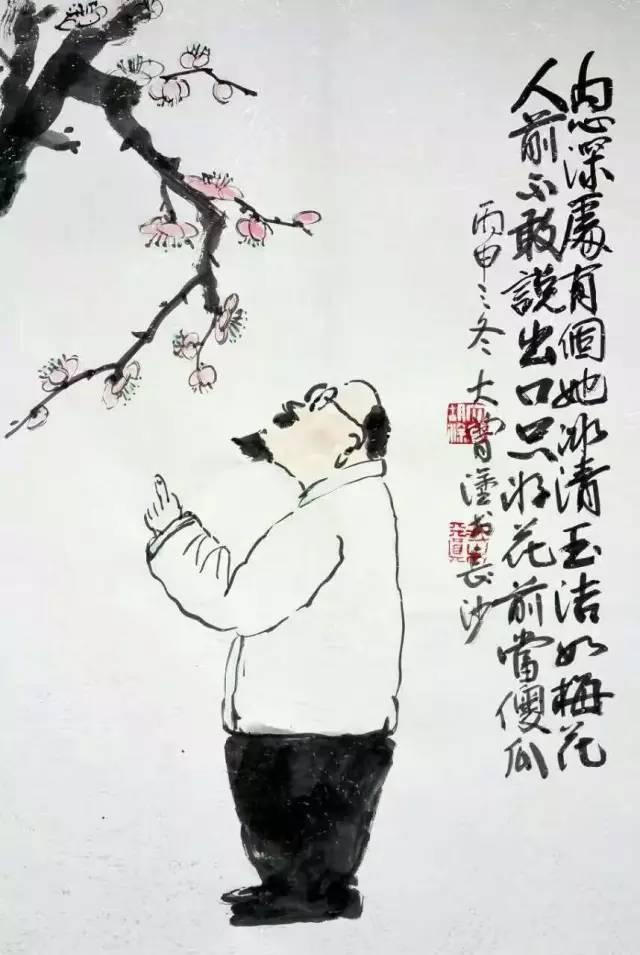 内心深處有個她冰清玉洁如梅花
人前不敢說出口只好花前當傻瓜
丙申之冬大塗長沙